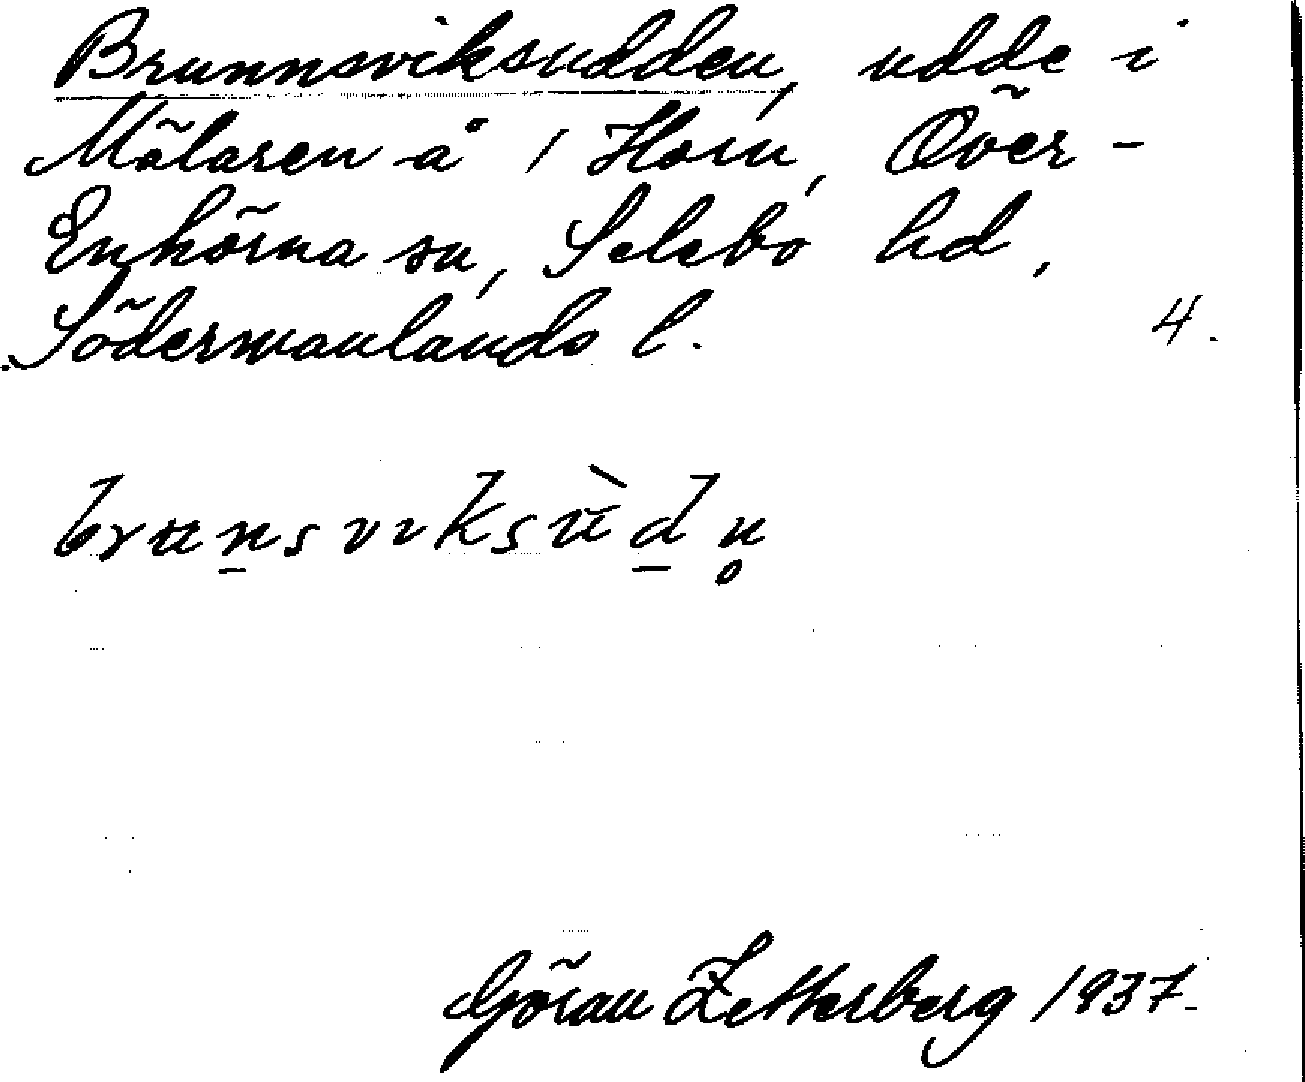 Brunnsviksudden, udde i
Mälaren å 1 Horn, Över-
Enhörna sn, Selebo hd,
Södermanlands l. 4.
brun̲sviksùd̲n̥
Göran Zetterberg 1937.